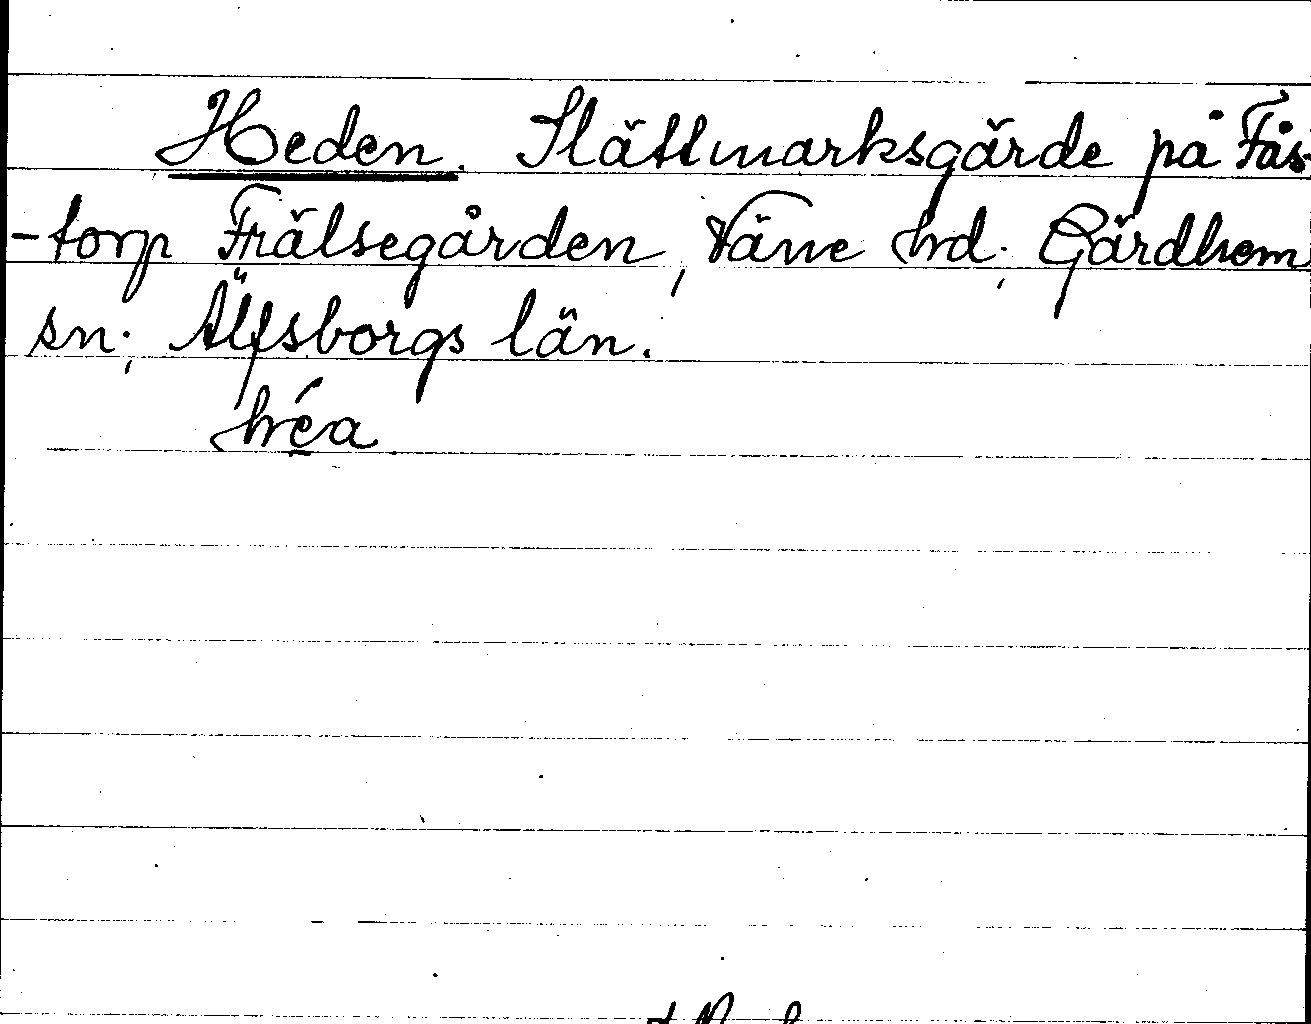 Heden. Slättmarksgärde på Fås-
-torp Frälsegården, Väne hrd; Gärdhem
sn; Älfsborgs län.
héa